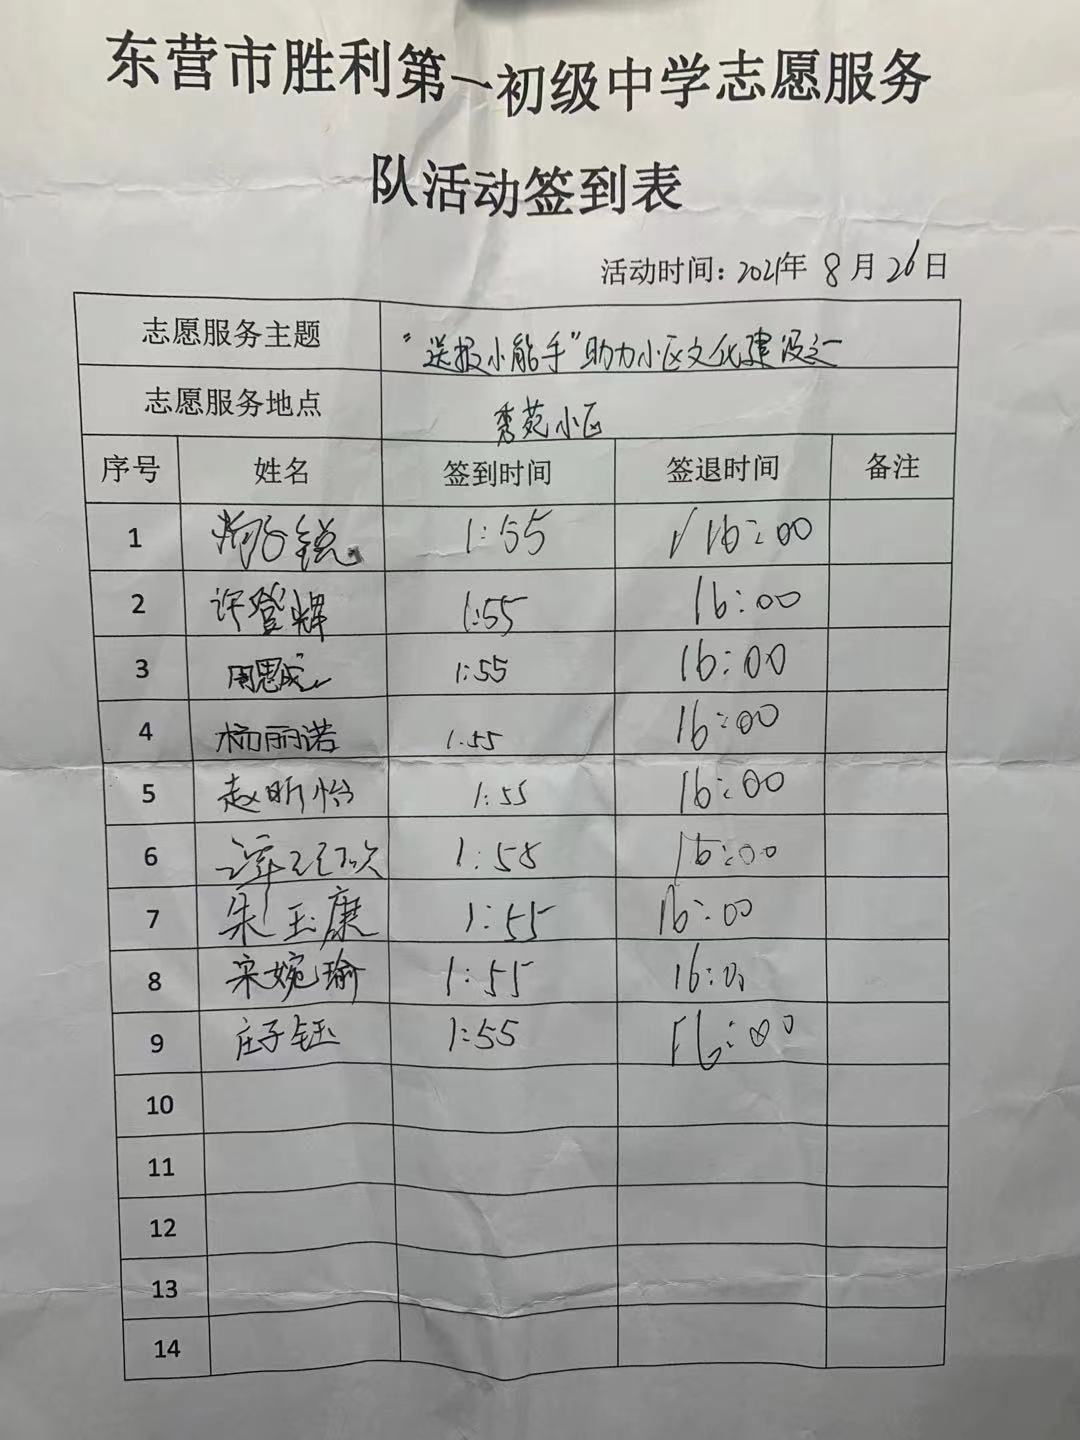 东营市胜利第一初级中学志愿服务
队活动签到表
活动时间：2021年 8月26日
志愿服务主题 “送报小能手”助力小区文化建设之一
志愿服务地点 秀苑小区
序号 姓名 签到时间 签退时间 备注
1 1:55 16:00
2 许登辉 1:55 16:00
3 周思成 1:55 16:00
4 杨丽诺 1:55 16:00
5 赵昕怡 1:55 16:00
6 1:58 16:00
7 朱玉康 1:55 16:00
8 宋婉瑜 1:55
9 庄子钰 1:55 16:00
10
11
12
13
14